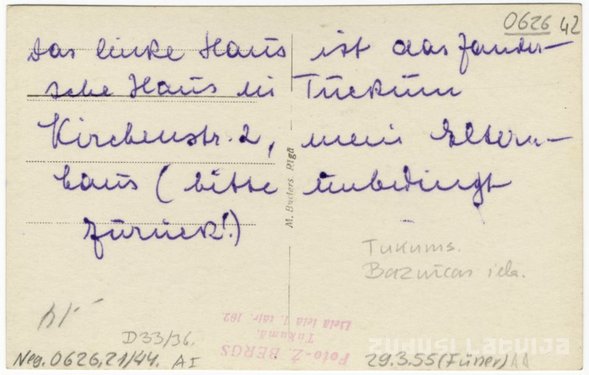 0626 42
Das linke Haus ist das Zander-
sche Haus in Tuckum
Kirchenstr. 2, mein Eltern-
haus (bitte unbedingt
zurück!)
M. Buclers, Rīgā
Tukums.
Baznīcas iela.
D33/36.
Neg. 0626,21/44. AI
Foto-Ž. BERGS
Tukumā,
Lielā ielā 1. tālr. 162
29.3.55 (Füner)
ZUDUSĪ LATVIJA